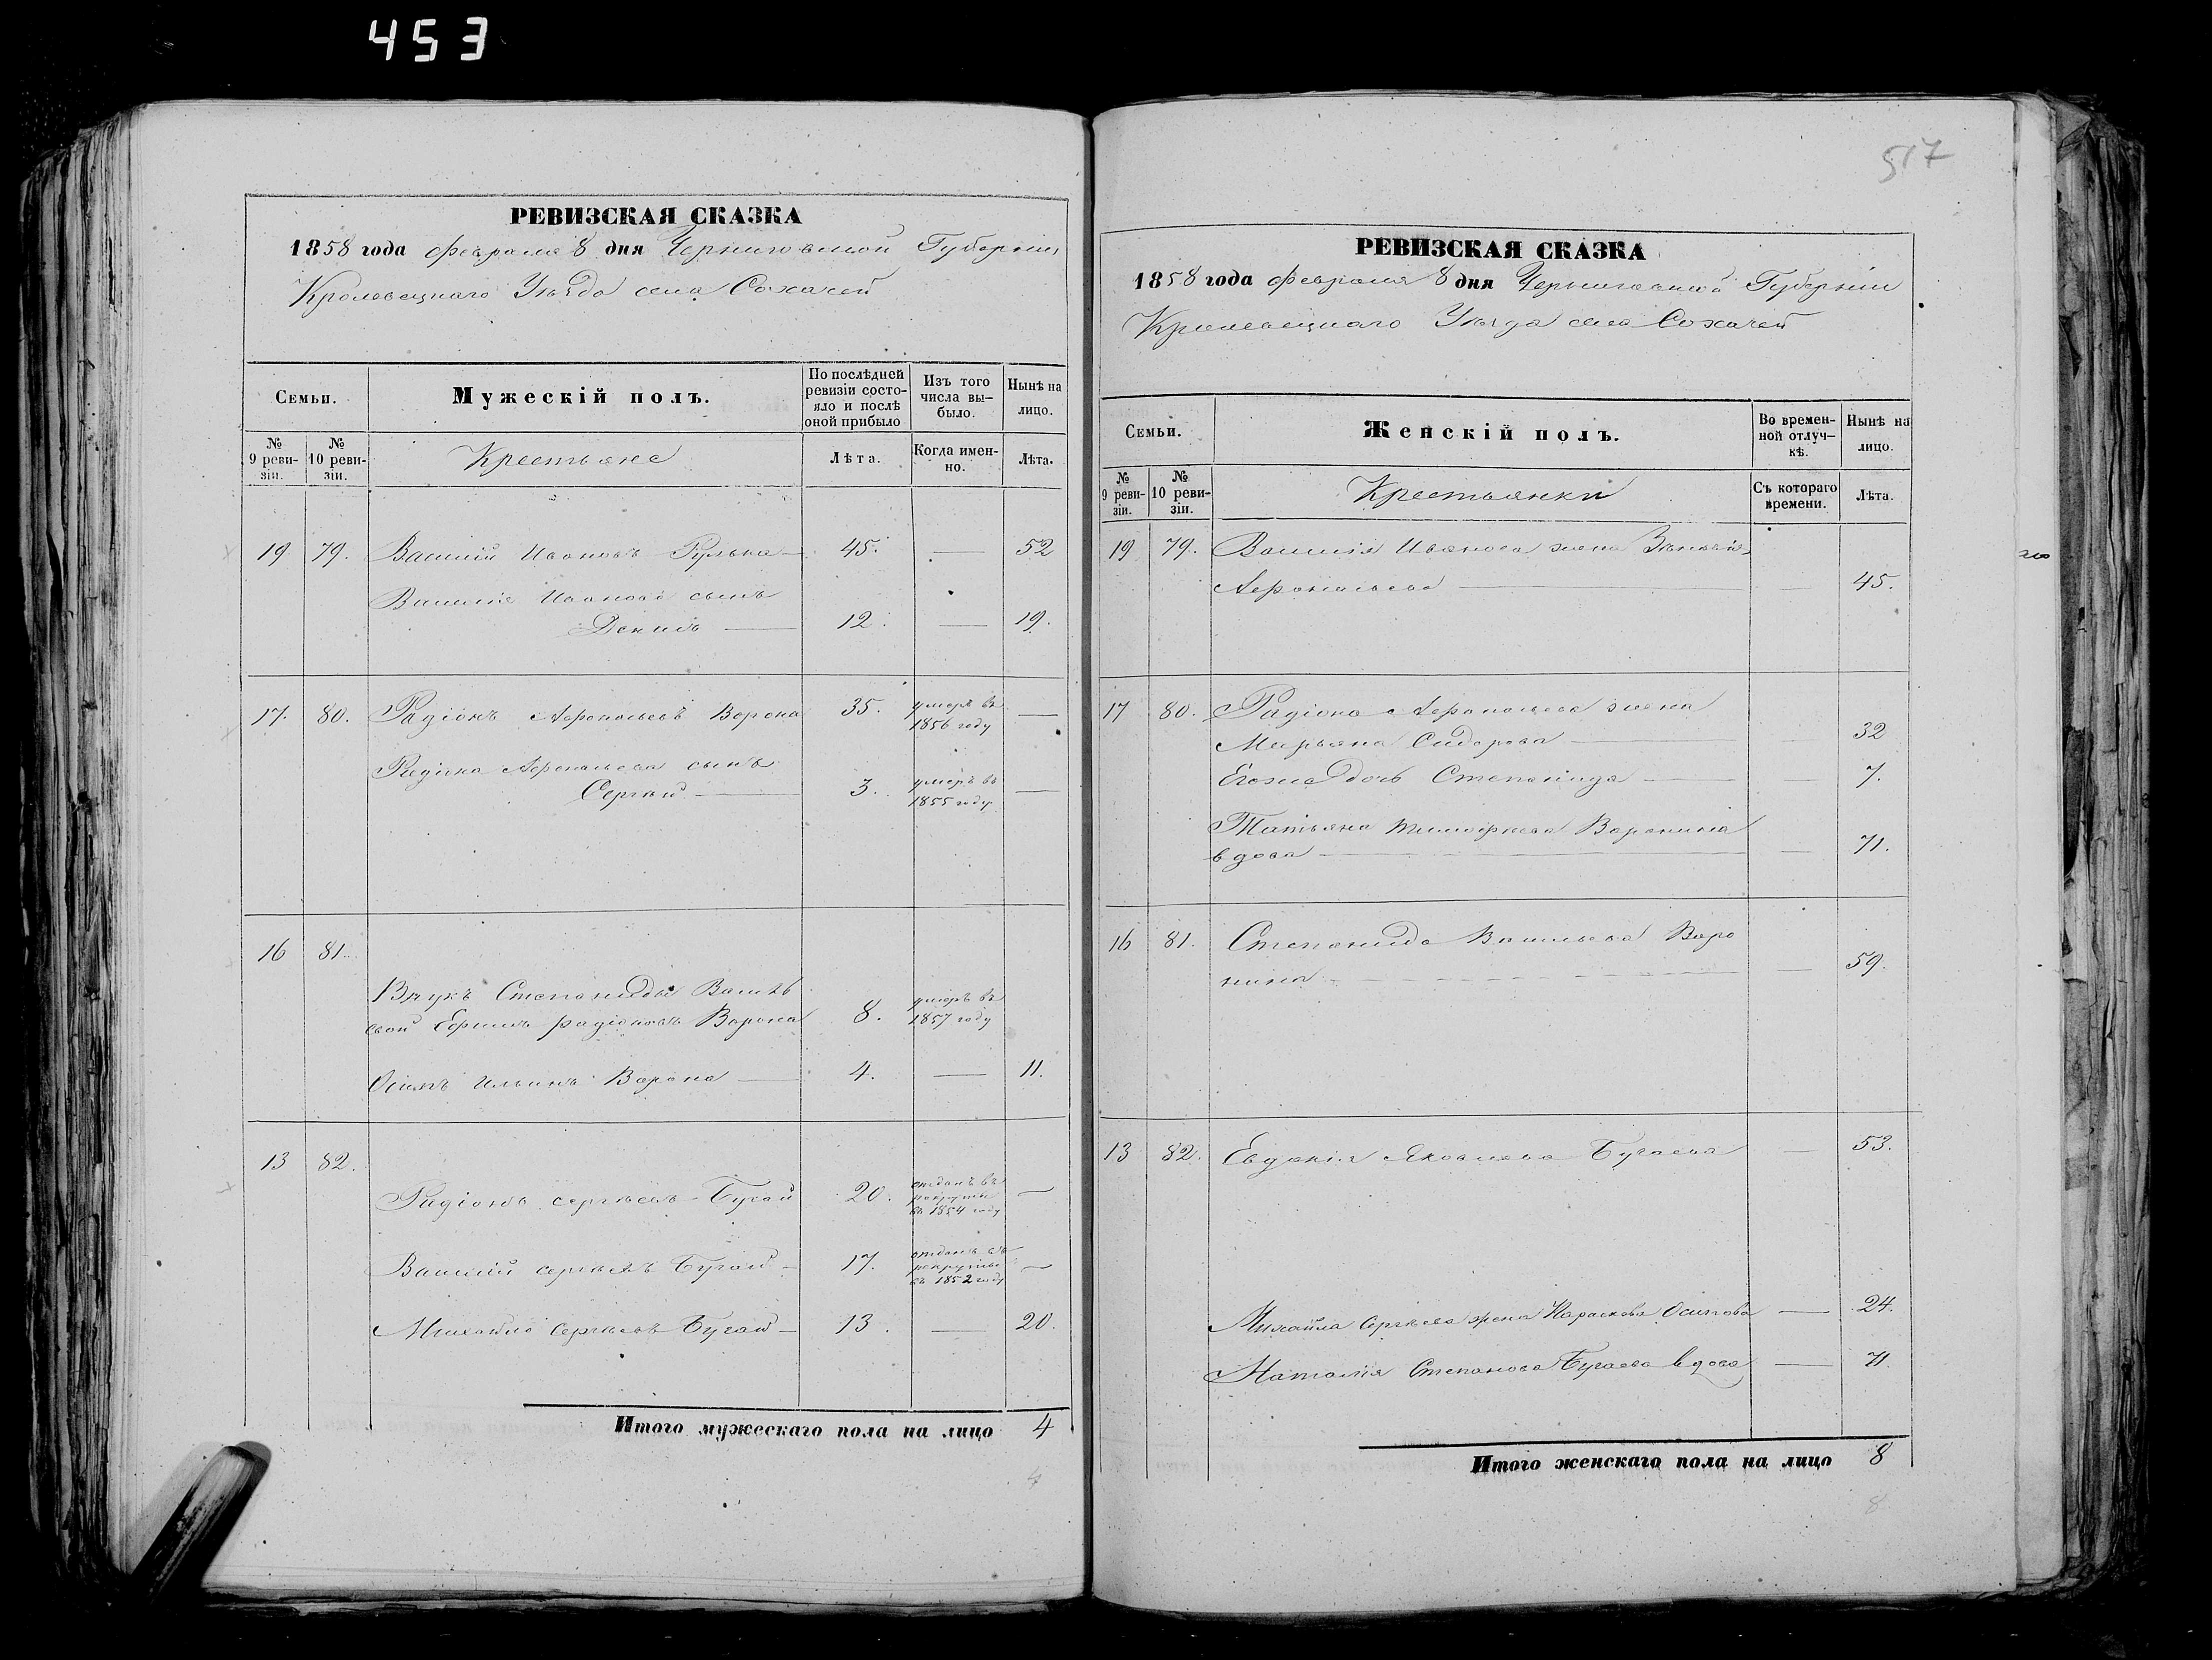 453
РЕВИЗСКАЯ СКАЗКА
1858 года февраля 8 дня Черниговской Губерніи
Кролевецкаго Уѣзда села Сохачей
Семьи.
Мужескій полъ.
По послѣдней ревизіи состояло и послѣ оной прибыло
Изъ того числа выбыло.
Нынѣ на лицо.
№ 9 ревизіи.
№ 10 ревизіи.
Крестьяне
Лѣта.
Когда именно.
Лѣта.
19 79. Василій Ивановъ Рулька — 45. — 52
Василія Иванова сынъ
Денисъ — 12. — 19.
17. 80. Радіонъ Афонасьевъ Ворона 35. умеръ въ 1856 году —
Радіона Афонасьева сынъ
Сергѣй — 3. умеръ въ 1855 году —
16 81.
Внукъ Степаниды Василь
евой Ефимъ Радіоновъ Ворона 8. умеръ въ 1857 году
Осипъ Ильинъ Ворона — 4. — 11.
13 82.
Радіонъ Сергѣевъ Бугай 20. отданъ въ рекруты въ 1854 году —
Василій Сергѣевъ Бугай — 17. отданъ въ рекруты въ 1852 году —
Михайло Сергѣевъ Бугай — 13. — 20.
Итого мужескаго пола на лицо 4
4
517
РЕВИЗСКАЯ СКАЗКА
1858 года февраля 8 дня Черниговской Губерніи
Кролевецкаго Уѣзда села Сохачей
Семьи.
Женскій полъ.
Во временной отлучкѣ.
Нынѣ на лицо.
№ 9 ревизіи.
№ 10 ревизіи.
Крестьянки
Съ котораго времени.
Лѣта.
19 79. Василія Иванова жена
Афонасьева — — 45.
17 80. Радіона Афонасьева жена
Марьяна Сидорова — — 32
Егоже дочь Степанида — — 7.
Татьяна Тимофѣева Воронина
вдова — — 71.
16 81. Степанида Васильева Воро
нина — — 59.
13 82. Евдокія Яковлева Бугаева — 53.
Михайла Сергѣева жена Параскова Осипова — 24.
Наталія Степанова Бугаева вдова — 71.
Итого женскаго пола на лицо 8
8